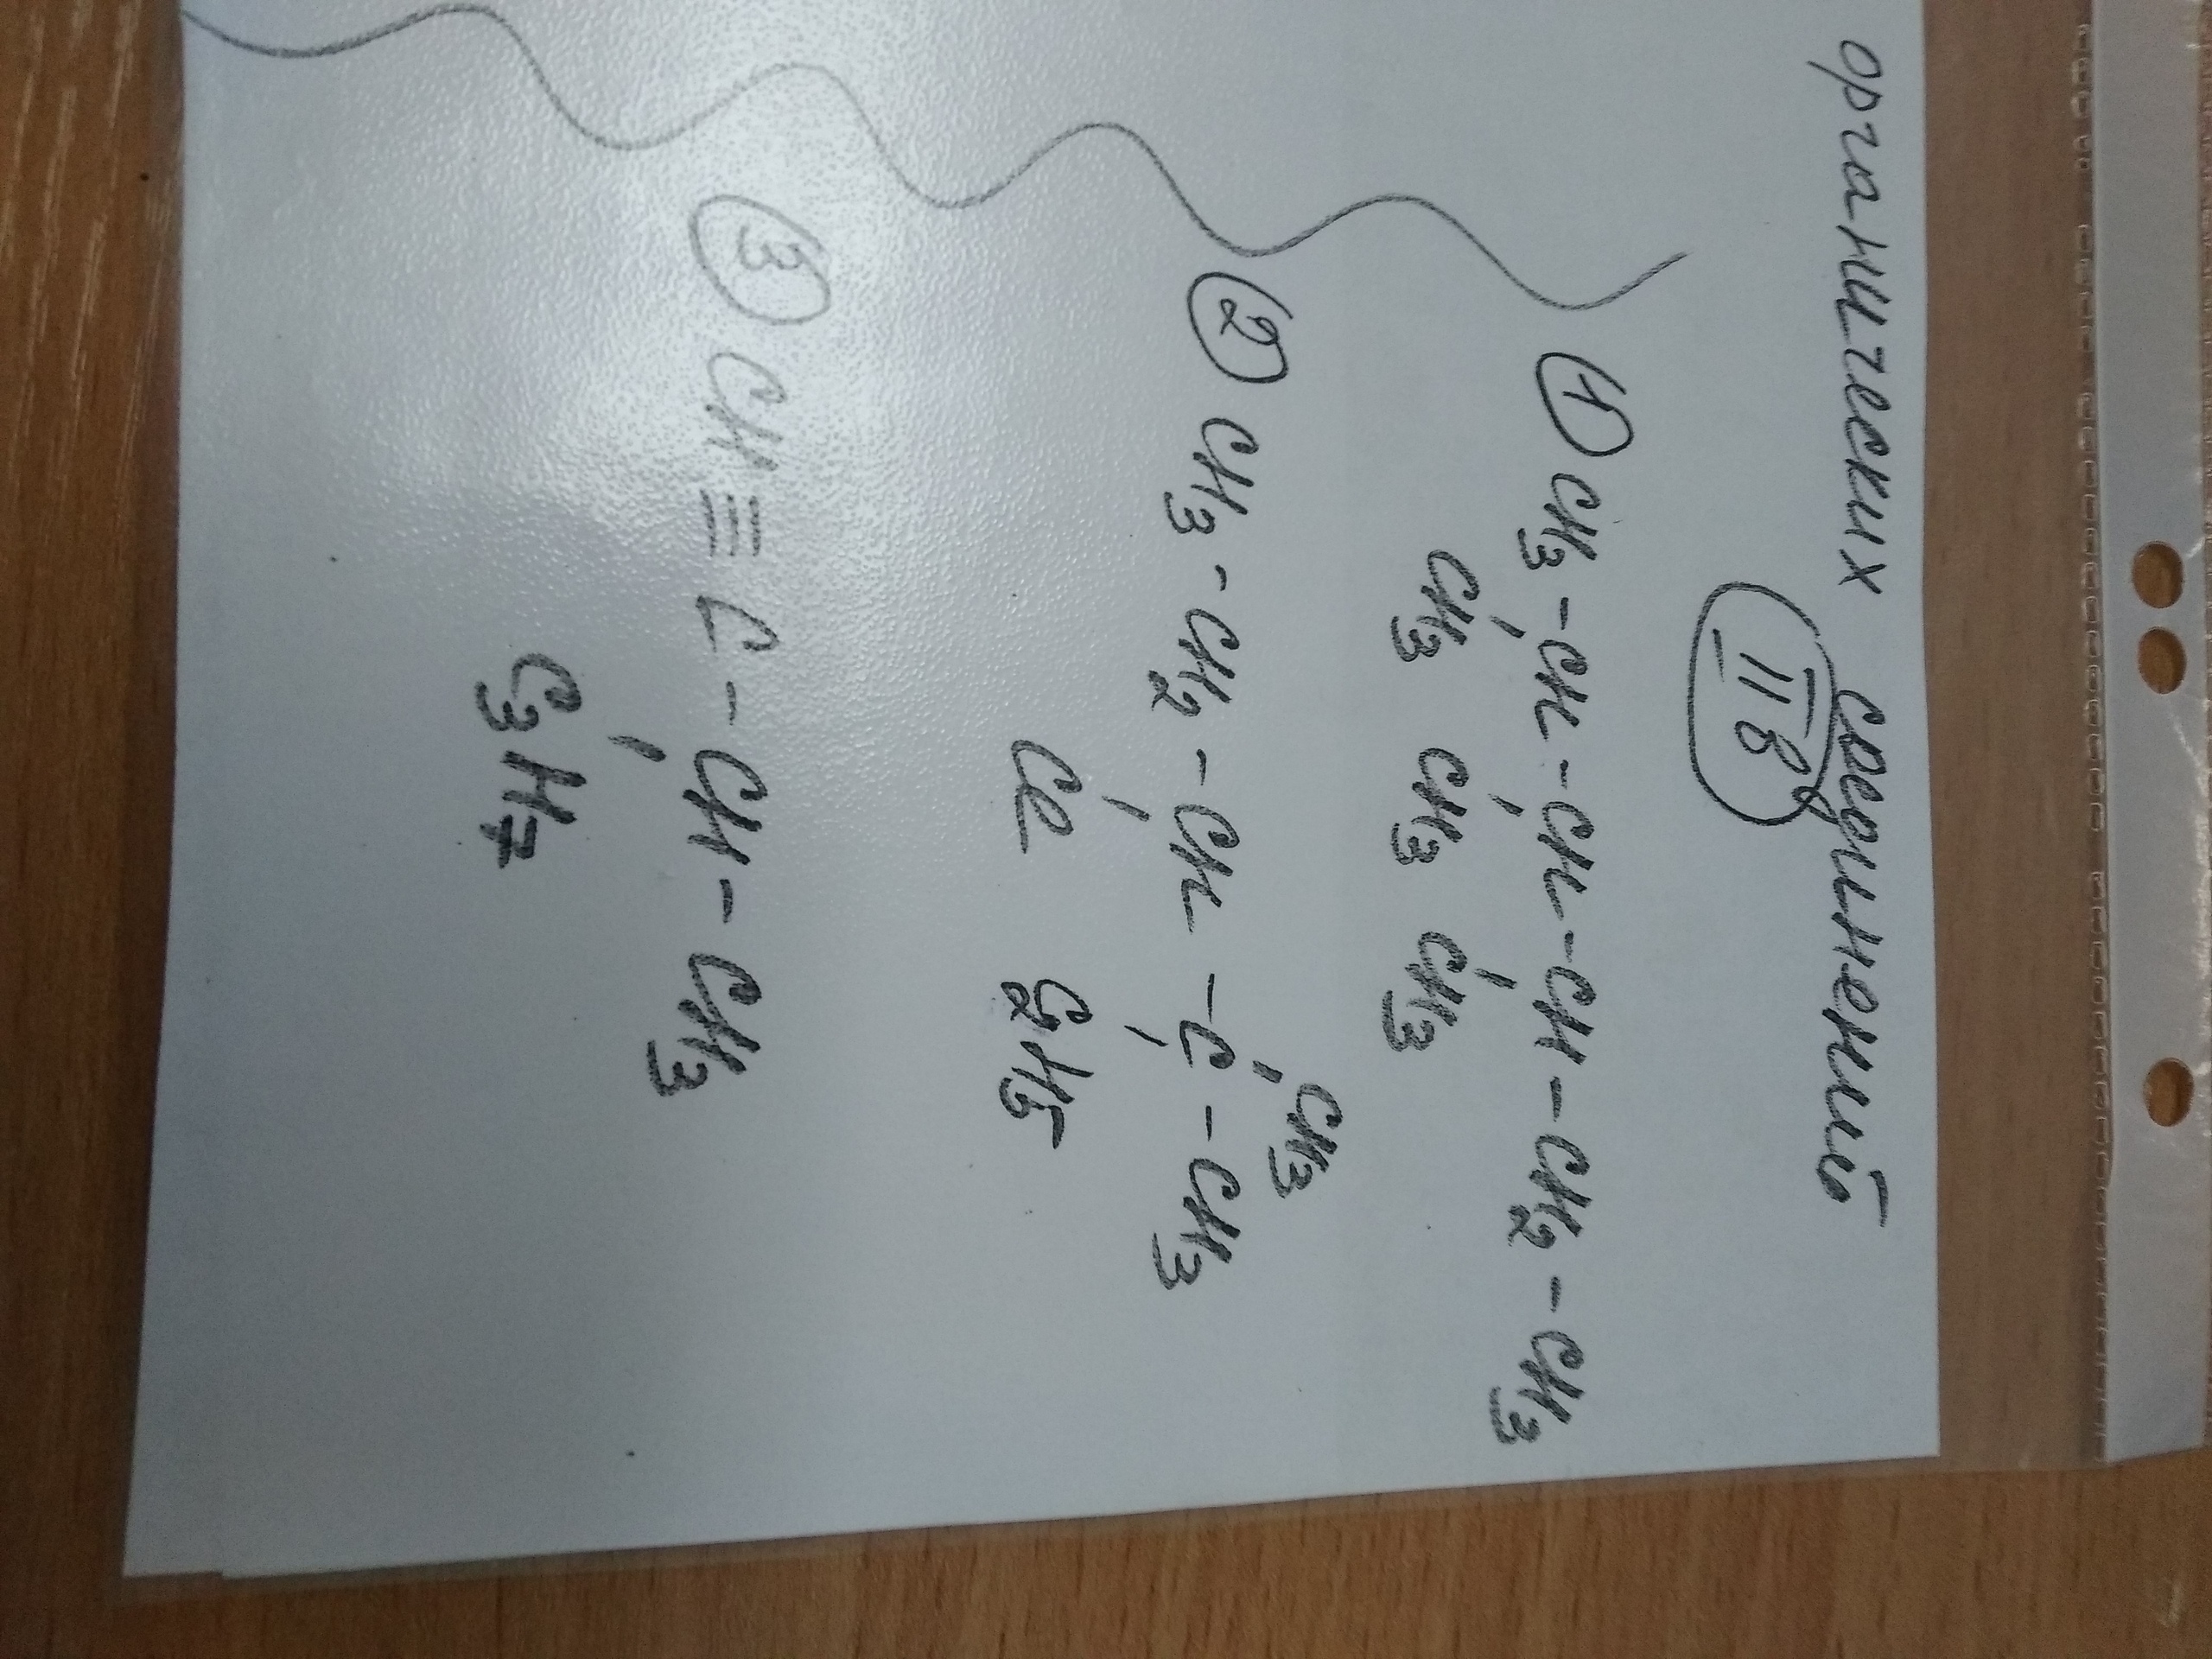 органических соединений
II в
① CH3-CH-CH-CH-CH2-CH3
CH3 CH3 CH3
CH3
② CH3-CH2-CH-C-CH3
Cl C2H5
③ CH≡C-CH-CH3
C3H7